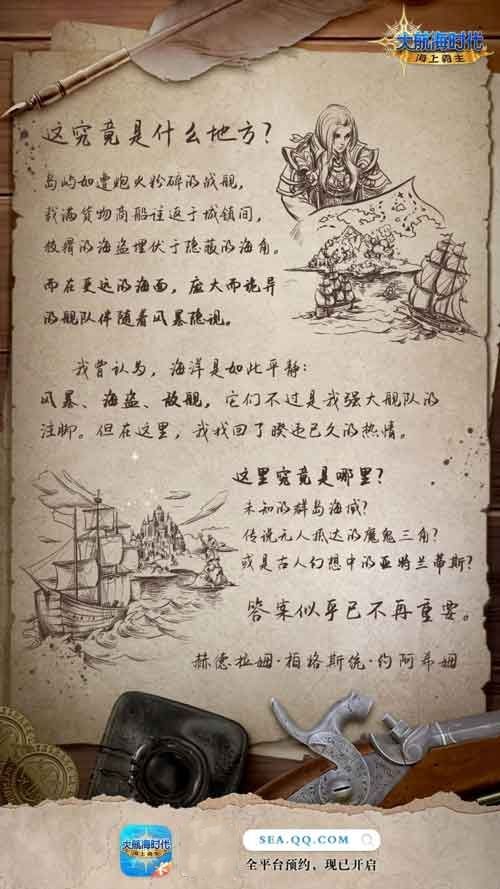 大航海时代
海上霸主
这究竟是什么地方？
岛屿如遭炮火粉碎的战舰，
载满货物商船往返于城镇间，
狡猾的海盗埋伏于隐蔽的海角。
而在更远的海面，庞大而诡异
的舰队伴随着风暴隐现。
我曾认为，海洋是如此平静：
风暴、海盗、敌舰，它们不过是我强大舰队的
注脚。但在这里，我找回了暌违已久的热情。
这里究竟是哪里？
未知的群岛海域？
传说无人抵达的魔鬼三角？
或是古人幻想中的亚特兰蒂斯？
答案似乎已不再重要。
赫德拉姆·柏格斯统·约阿希姆
大航海时代
海上霸主
SEA.QQ.COM
全平台预约，现已开启